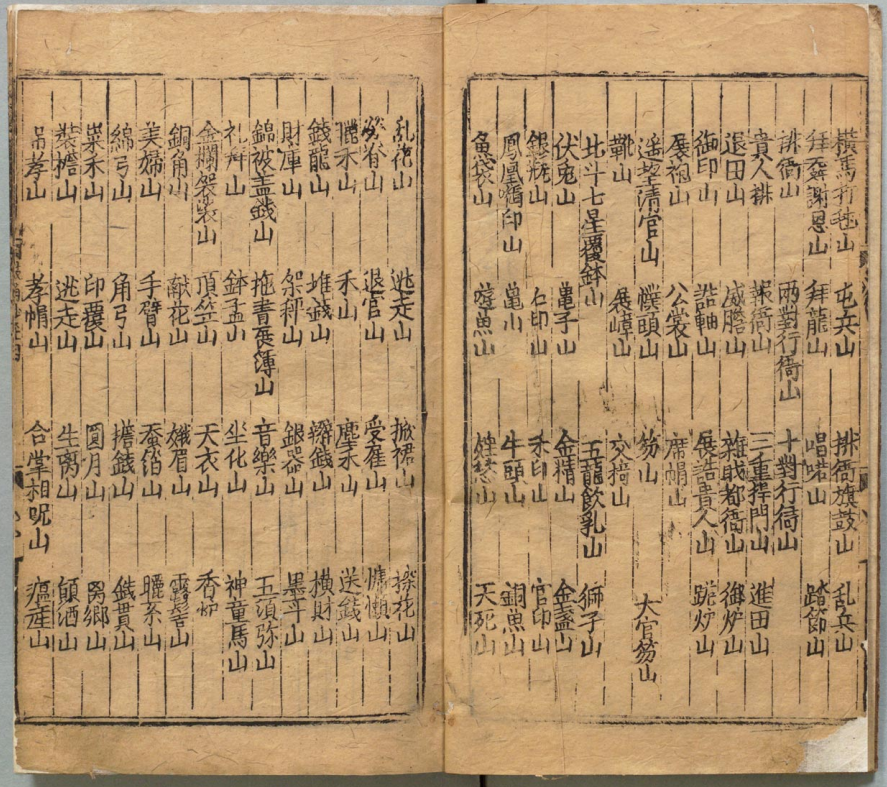 橫馬打毬山 屯兵山 排衙旗鼓山 乱兵山
拜舞謝恩山 拜龍山 唱喏山 踏節山
排衙山 兩對行衙山 十對行衙山
貴人排 報衙山 三重擇門山 進田山
退田山 威膽山 雜職都衙山 御炉山
御印山 誥軸山 展誥貴人山 跪炉山
展袍山 公裳山 席帽山
遥望清官山 幞頭山 笏山 大官笏山
靴山 展嶂山 交掎山
北斗七星覆鉢山 五龍飲乳山 獅子山
伏兎山 龜子山 金精山 金盞山
銀瓶山 石印山 禾印山 官印山
鳳凰啣印山 龜山 牛頭山 銅魚山
魚袋山 遊魚山 山 天死山
乱花山 逃走山 掀裙山 探花山
山 退官山 受雇山 慵懶山
禾山 禾山 塵禾山 送錢山
錢龍山 堆錢山 山 橫財山
財庫山 架秤山 銀器山 墨斗山
錦被盖錢山 拖書疋薄山 音樂山 五湏弥山
山 鉢盂山 坐化山 神童馬山
金襴袈裟山 頂笠山 天衣山 香炉
銅角山 献花山 娥眉山 露髻山
美婦山 手臂山 蚕箔山 山
綿弓山 角弓山 擔錢山 錢貫山
菜禾山 印覆山 圓月山 山
裝擔山 逃走山 生离山 山
吊孝山 孝帽山 合掌相呪山 瘟㾕山